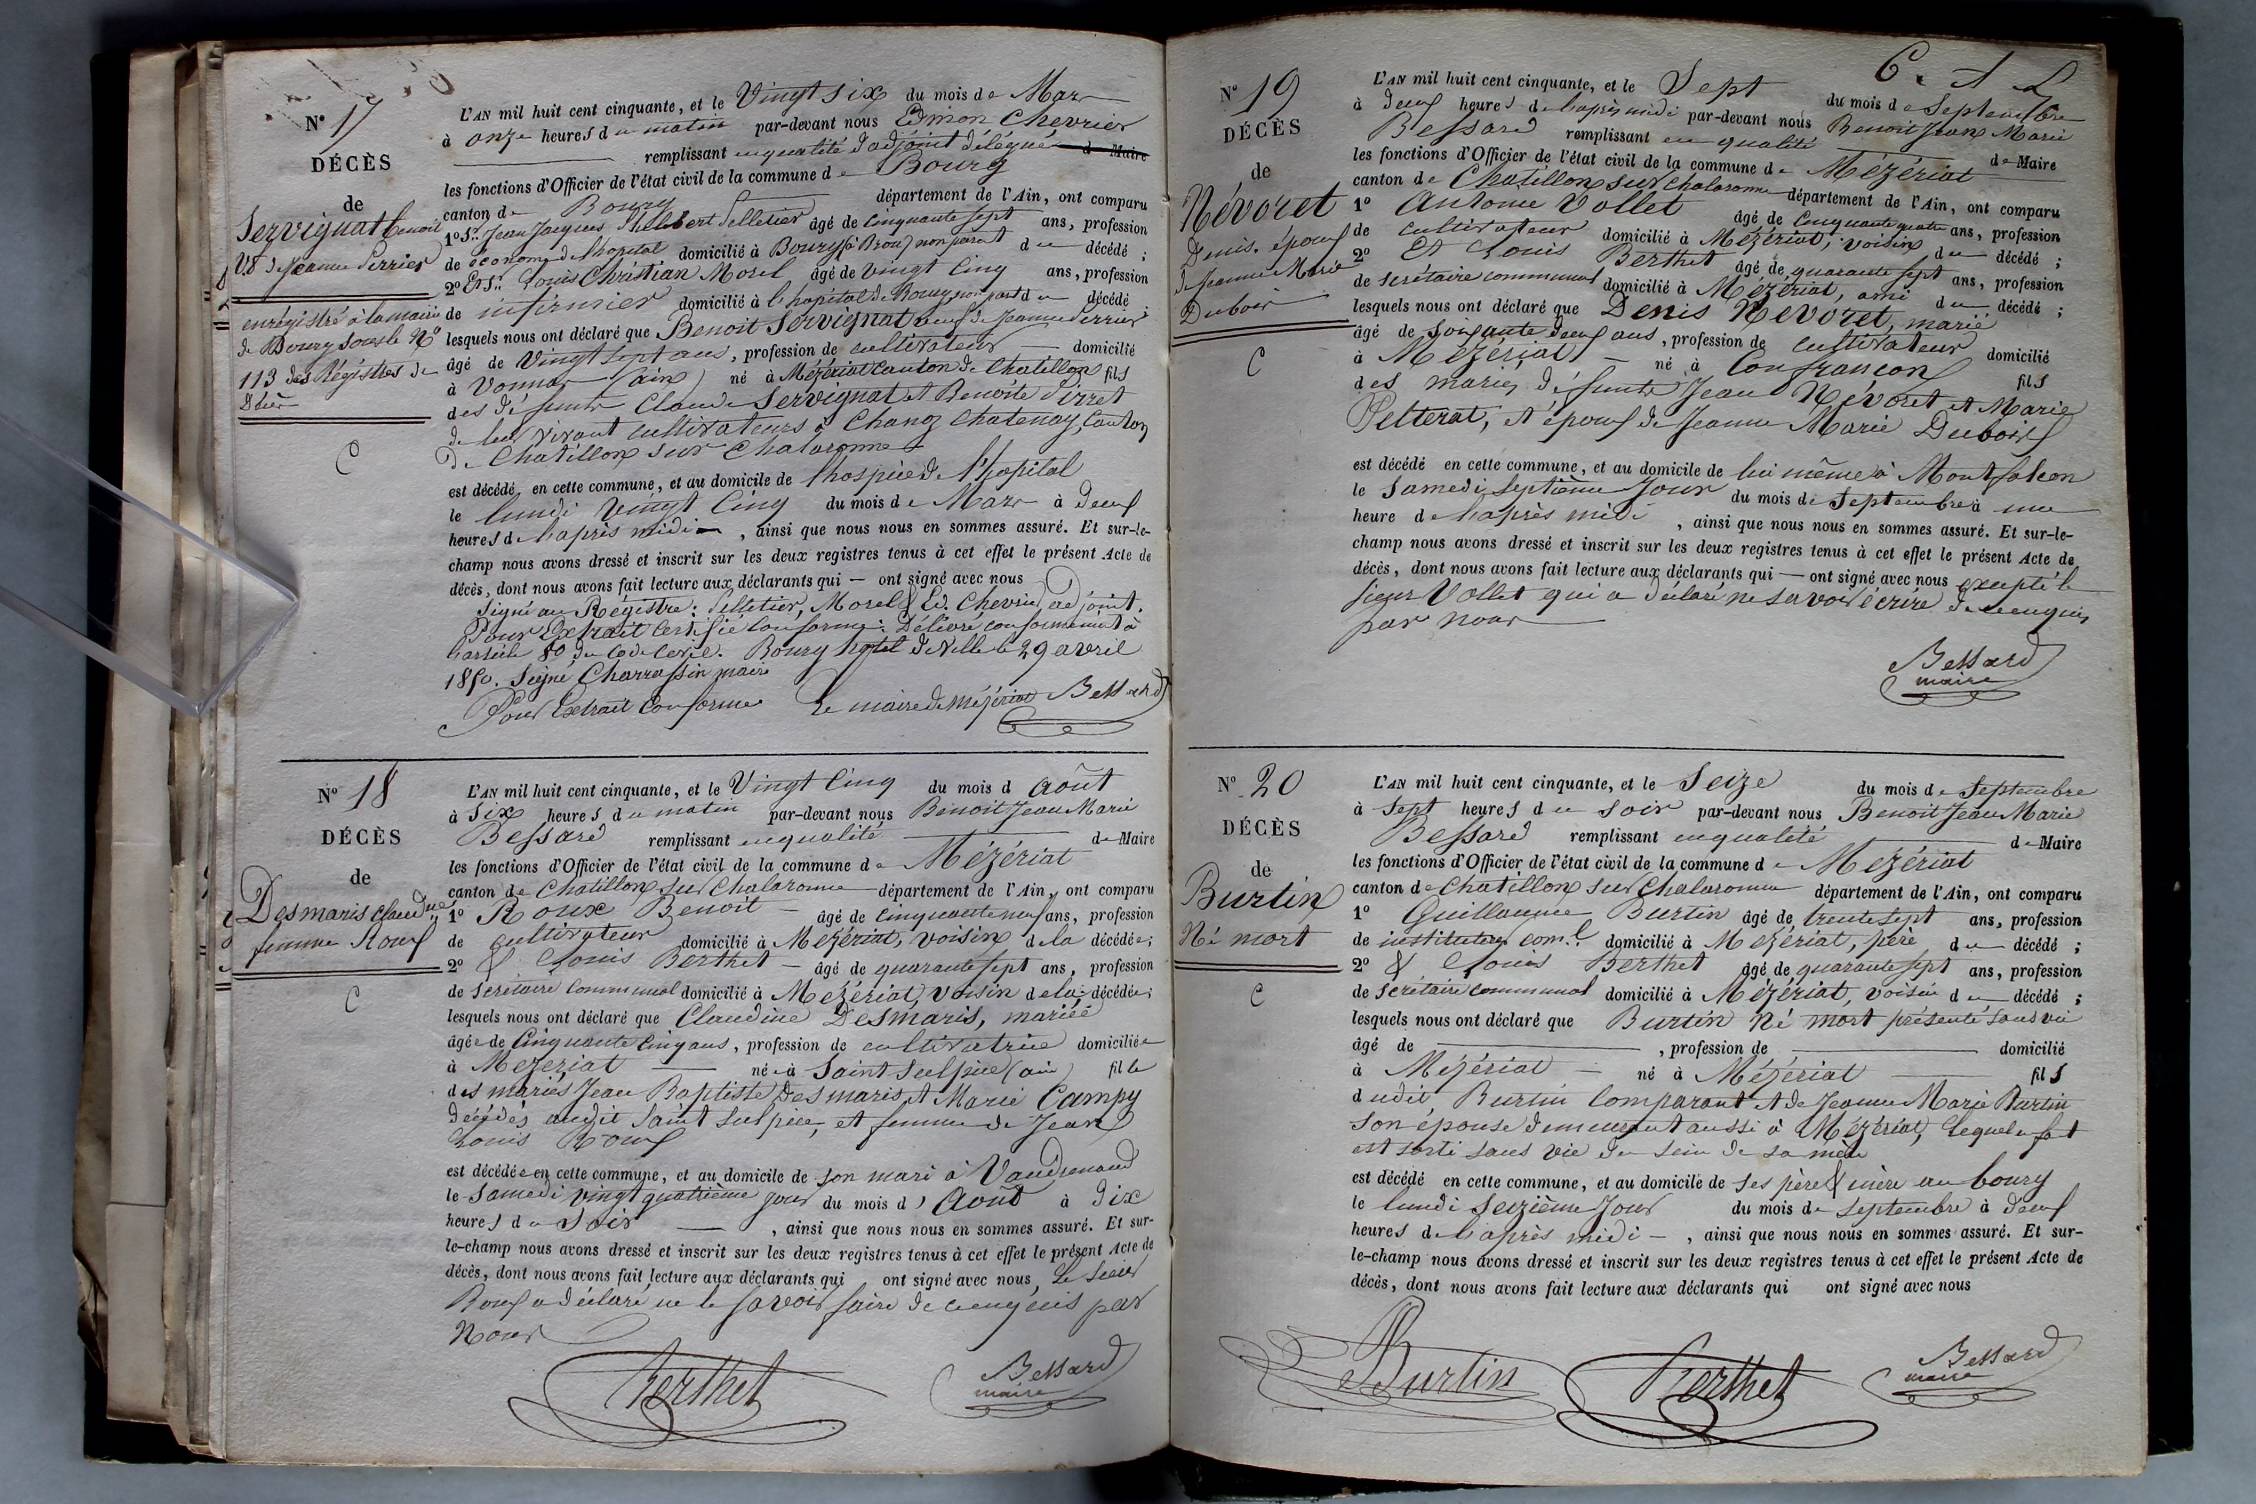 N° 17
DÉCÈS
de
Servignat Benoit
Vf de Jeanne Perrier
enrégistré à la mairie
de Bourg sous le N°
113 des Régistres de
C
L'AN mil huit cent cinquante, et le Vingt six du mois de Mars
à onze heures du matin par-devant nous Edmon Chevrier
remplissant en qualité d'adjoint délégué d Maire
les fonctions d'Officier de l'état civil de la commune de Bourg
canton de Bourg département de l'Ain, ont comparu
1° Sr. Jean Jacques Philibert Pelletier âgé de cinquante sept ans, profession
de économe de l'hopital domicilié à Bourg (à Brou) non parent du décédé ;
2° Et Sr. Louis Christian Morel âgé de vingt cinq ans, profession
de infirmier domicilié à l'hopital de Bourg non part du décédé
lesquels nous ont déclaré que Benoit Servignat veuf de Jeanne Perrier
âgé de Vingt sept ans, profession de cultivateur domicilié
à Vonnas (ain) né à Mézériat canton de Chatillon fils
des défunts Claude Servignat et Benoite Pirret
de leur vivant cultivateurs à Chanoz Chatenay, Canton
de Chatillon sur Chalaronne
est décédé en cette commune, et au domicile de l'hospice de l'hopital
le lundi vingt cinq du mois de Mars à deux
heures de l'après midi, ainsi que nous nous en sommes assuré. Et sur-le-
champ nous avons dressé et inscrit sur les deux registres tenus à cet effet le présent Acte de
décès, dont nous avons fait lecture aux déclarants qui — ont signé avec nous
Signé au Régistre: Pelletier, Morel & Ed. Chevrier, adjoint.
Pour Extrait certifié conforme: Délivré conformément à
l'article 80 du Code Civil. Bourg hotel de Ville le 29 avril
1850. Signé Charrassin maire
Pour Extrait conforme Le maire de Mézériat Bessard
N° 18
DÉCÈS
de
Desmaris Claudine
femme Roux
C
L'AN mil huit cent cinquante, et le Vingt Cinq du mois d août
à Six heures du matin par-devant nous Benoit Jean Marie
Bessard remplissant en qualité de Maire
les fonctions d'Officier de l'état civil de la commune de Mézériat
canton de Chatillon sur Chalaronne département de l'Ain, ont comparu
1° Roux Benoit âgé de cinquante neuf ans, profession
de cultivateur domicilié à Mézériat, voisin de la décédée ;
2° & Louis Berthet âgé de quarante sept ans, profession
de Secrétaire Communal domicilié à Mézériat, voisin de la décédée ;
lesquels nous ont déclaré que Claudine Desmaris, mariée
âgée de Cinquante Cinq ans, profession de cultivatrice domiciliée
à Mézériat née à Saint Sulpice (ain) fille
des mariés Jean Baptiste Desmaris, et Marie Campy
décédés audit Saint Sulpice, et femme de Jean
Louis Roux
est décédée en cette commune, et au domicile de son mari à Vaudrenand
le samedi vingt quatrième jour du mois d'Août à dix
heures du Soir, ainsi que nous nous en sommes assuré. Et sur-
le-champ nous avons dressé et inscrit sur les deux registres tenus à cet effet le présent Acte de
décès, dont nous avons fait lecture aux déclarants qui ont signé avec nous, Le Sieur
Roux a déclaré ne le savoir faire de ce enquis par
Nous
Berthet Bessard
maire
N° 19
DÉCÈS
de
Névoret
Denis, époux
de Jeanne Marie
Dubois
C
L'AN mil huit cent cinquante, et le Sept du mois de Septembre
à deux heures de l'après midi par-devant nous Benoit Jean Marie
Bessard remplissant en qualité de Maire
les fonctions d'Officier de l'état civil de la commune de Mézériat
canton de Chatillon sur Chalaronne département de l'Ain, ont comparu
1° Antoine Vollet âgé de Cinquante quatre ans, profession
de cultivateur domicilié à Mézériat, voisin du décédé ;
2° Et Louis Berthet âgé de quarante sept ans, profession
de secrétaire communal domicilié à Mézériat, ami du décédé ;
lesquels nous ont déclaré que Denis Névoret, marié
âgé de soixante deux ans, profession de cultivateur domicilié
à Mézériat né à Confrançon fils
des mariés défunts Jean Névoret et Marie
Pelterat, et époux de Jeanne Marie Dubois
est décédé en cette commune, et au domicile de lui même à Montfalcon
le Samedi Septième Jour du mois de Septembre à une
heure de l'après midi, ainsi que nous nous en sommes assuré. Et sur-le-
champ nous avons dressé et inscrit sur les deux registres tenus à cet effet le présent Acte de
décès, dont nous avons fait lecture aux déclarants qui — ont signé avec nous excepté le
sieur Vollet qui a déclaré ne savoir écrire de ce enquis
par nous
Bessard
maire
N° 20
DÉCÈS
de
Burtin
Né mort
C
L'AN mil huit cent cinquante, et le Seize du mois de Septembre
à Sept heures du soir par-devant nous Benoit Jean Marie
Bessard remplissant en qualité de Maire
les fonctions d'Officier de l'état civil de la commune de Mézériat
canton de Chatillon sur Chalaronne département de l'Ain, ont comparu
1° Guillaume Burtin âgé de trente sept ans, profession
de instituteur com.l domicilié à Mézériat, père du décédé ;
2° & Louis Berthet âgé de quarante sept ans, profession
de Secrétaire communal domicilié à Mézériat, voisin du décédé ;
lesquels nous ont déclaré que Burtin Né mort présenté sans vie
âgé de , profession de domicilié
à Mézériat né à Mézériat fils
dudit Burtin Comparant et de Jeanne Marie Burtin
son épouse demeurant aussi à Mézériat, lequel enfant
est sorti sans vie du sein de sa mère
est décédé en cette commune, et au domicile de ses père & mère au bourg
le lundi Seizième Jour du mois de Septembre à deux
heures de l'après midi, ainsi que nous nous en sommes assuré. Et sur-
le-champ nous avons dressé et inscrit sur les deux registres tenus à cet effet le présent Acte de
décès, dont nous avons fait lecture aux déclarants qui ont signé avec nous
Burtin Berthet Bessard
maire